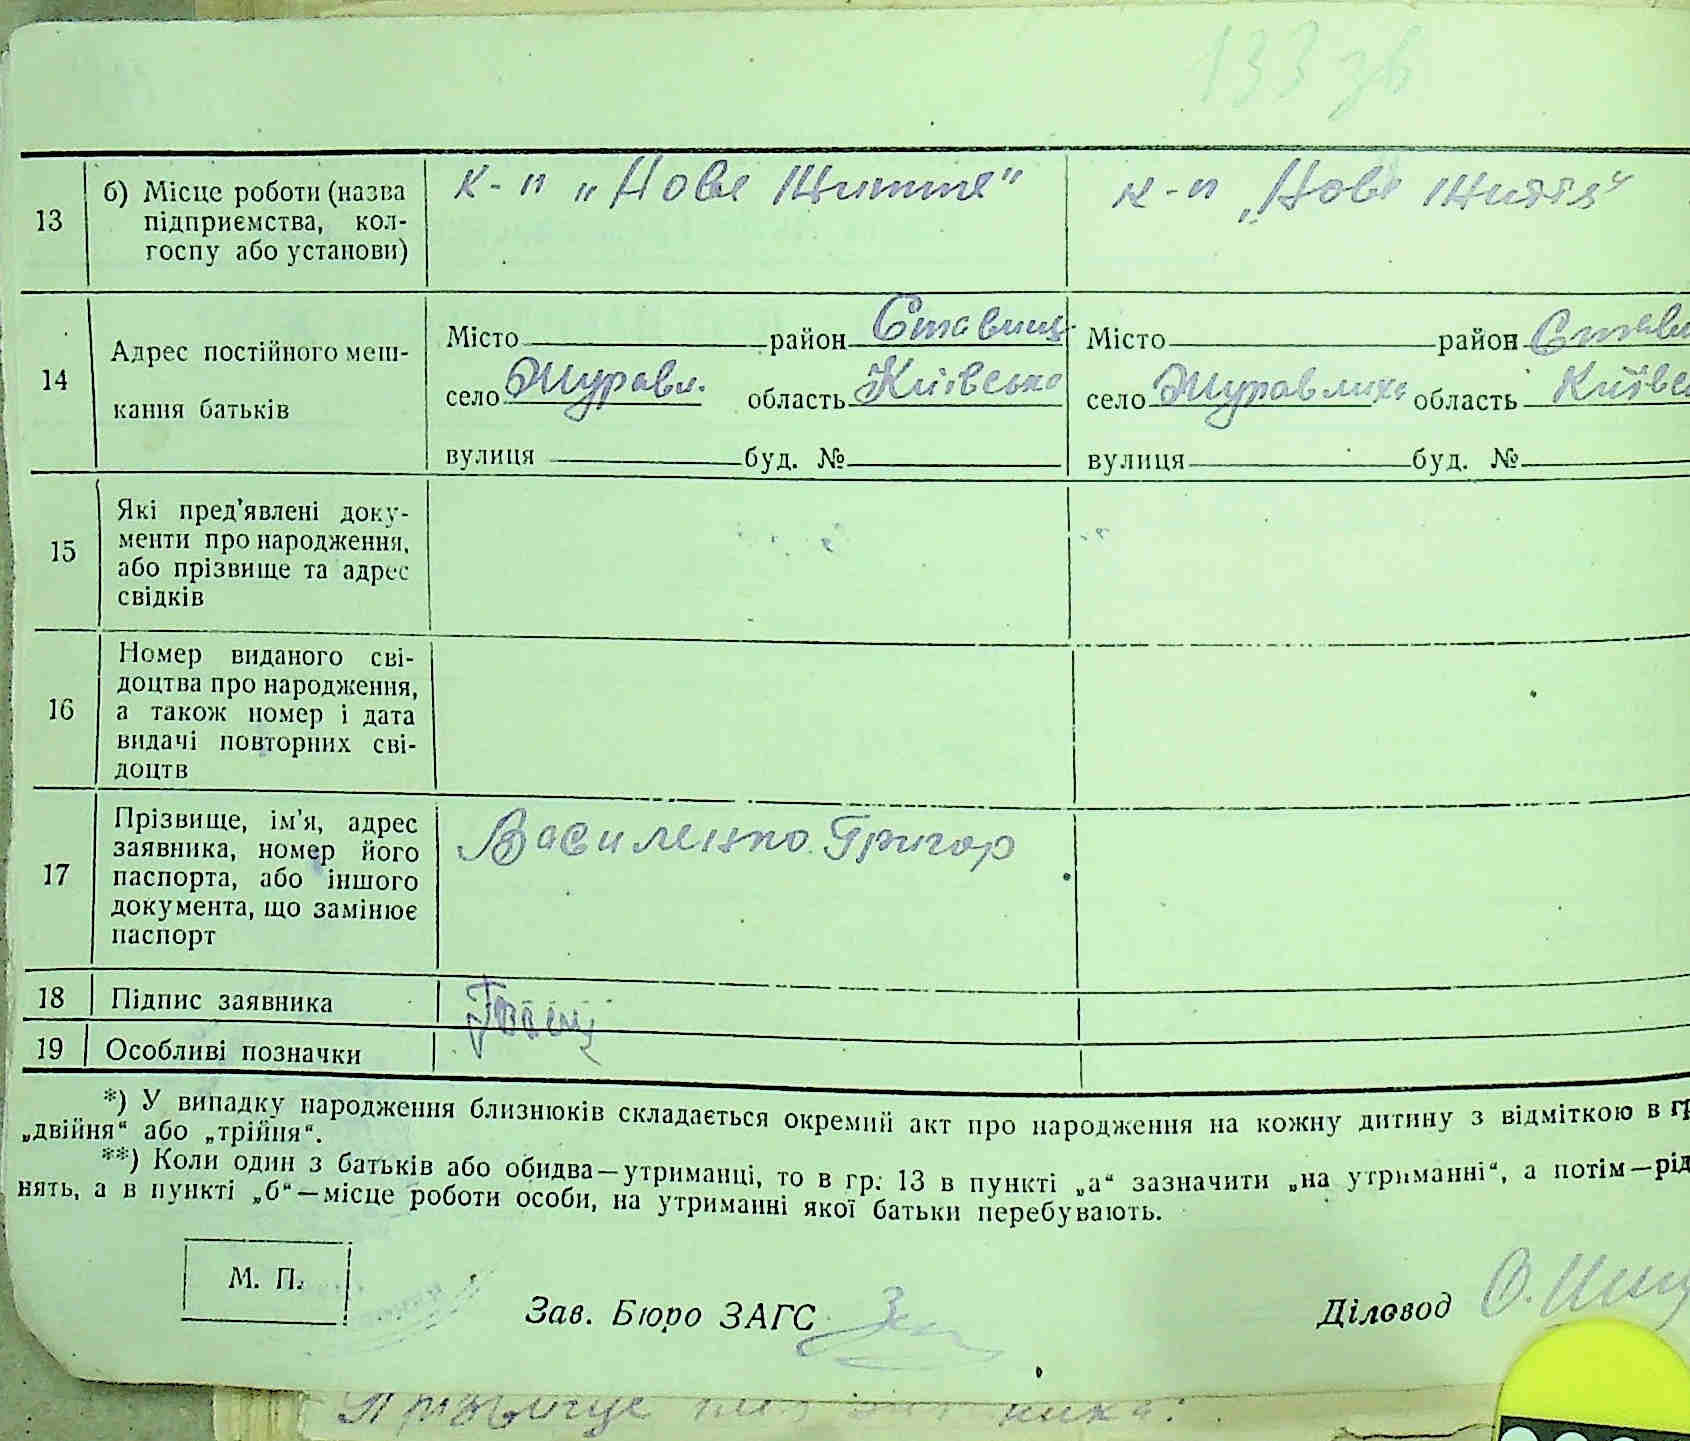 133 зв
13
б) Місце роботи (назва
підприємства, кол-
госпу або установи)
к-п „Нове Життя"
к-п „Нове Життя"
14
Адрес постійного меш-
кання батьків
Місто район Ставищ.
село Журавл. область Київська
вулиця буд. №
Місто район Стави
село Журавлиха область Київсь
вулиця буд. №
15
Які пред'явлені доку-
менти про народження,
або прізвище та адрес
свідків
16
Номер виданого сві-
доцтва про народження,
а також номер і дата
видачі повторних сві-
доцтв
17
Прізвище, ім'я, адрес
заявника, номер його
паспорта, або іншого
документа, що замінює
паспорт
Василенко Григор
18 Підпис заявника
19 Особливі позначки
*) У випадку народження близнюків складається окремий акт про народження на кожну дитину з відміткою в гр
„двійня" або „трійня".
**) Коли один з батьків або обидва—утриманці, то в гр. 13 в пункті „а" зазначити „на утриманні", а потім—рід
нять, а в пункті „б"—місце роботи особи, на утриманні якої батьки перебувають.
М. П.
Зав. Бюро ЗАГС
Діловод
Прізвище